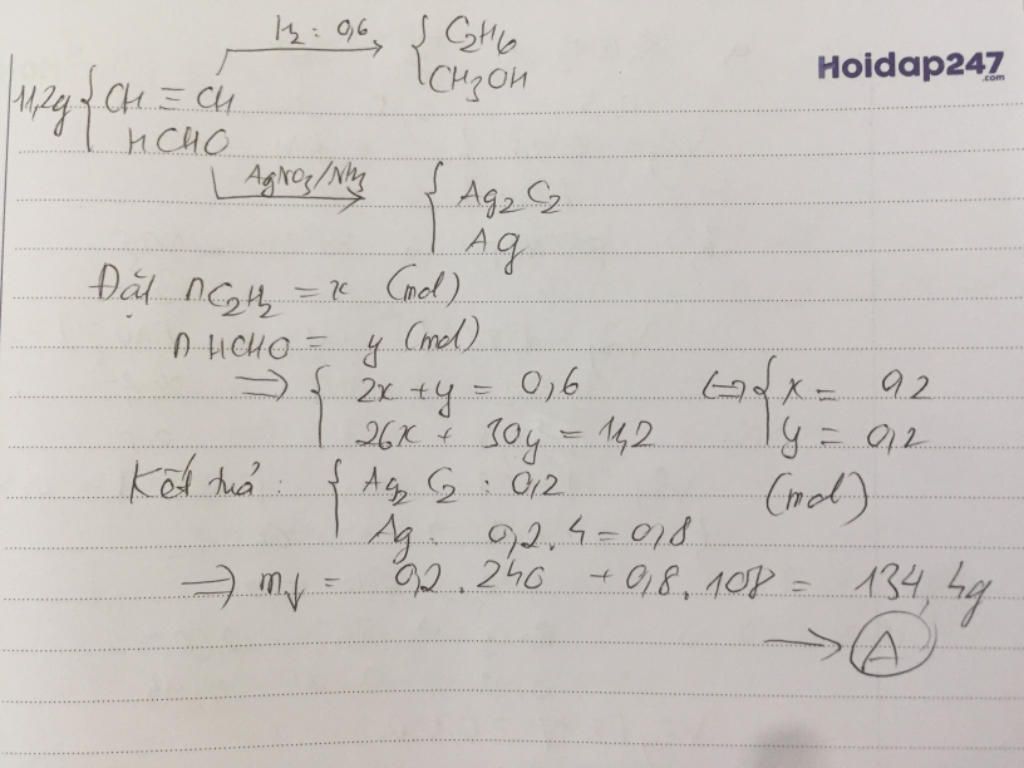 H₂ : 0,6
C₂H₆
CH₃OH
Hoidap247
.com
11,2g { CH ≡ CH
HCHO
AgNO₃/NH₃
{ Ag₂C₂
Ag
Đặt nC₂H₂ = x (mol)
nHCHO = y (mol)
=> { 2x + y = 0,6 <=> { x = 0,2
26x + 30y = 11,2 y = 0,2
Kết tủa : { Ag₂C₂ : 0,2 (mol)
Ag : 0,2 . 4 = 0,8
=> m↓ = 0,2 . 240 + 0,8 . 108 = 134,4g
→ A